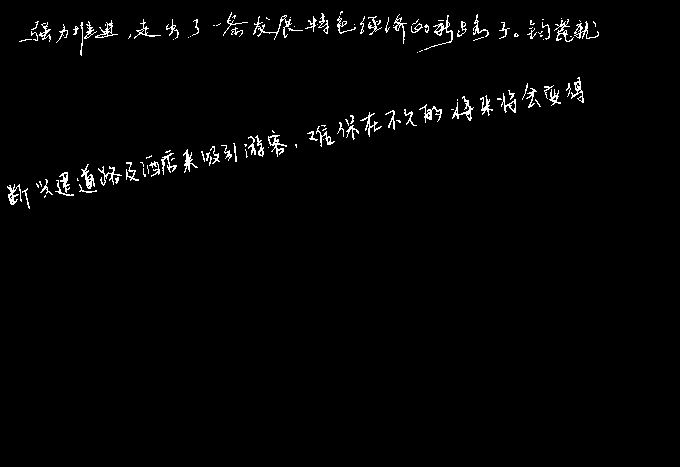 强力推进,走出了一条发展特色经济的新路子。钧瓷就
断兴建道路及酒店来吸引游客,难保在不久的将来将会变得